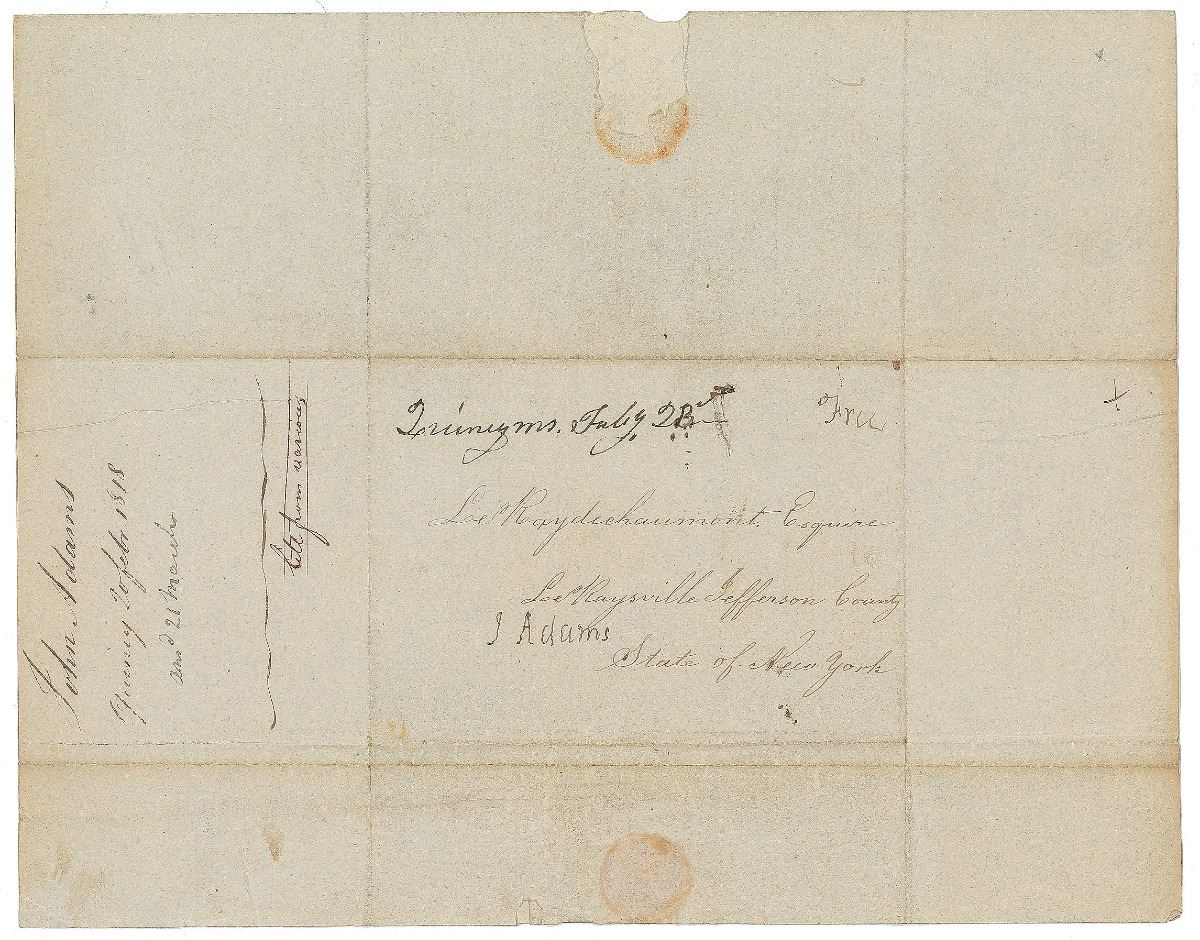 Quincy ms. Feby 28 Free
LeRaydechaumont Esquire
LeRaysville Jefferson County
J Adams
State of New York
John Adams
Quincy 20 feb. 1818
ans'd 28 March
from various